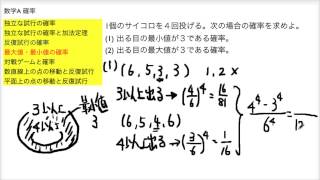 数学A 確率
独立な試行の確率
独立な試行の確率と加法定理
反復試行の確率
最大値・最小値の確率
対戦ゲームと確率
数直線上の点の移動と反復試行
平面上の点の移動と反復試行
1個のサイコロを4回投げる。次の場合の確率を求めよ。
(1) 出る目の最小値が3である確率。
(2) 出る目の最大値が3である確率。
(1) (6,5,3,3) 1,2 ×
3以上出る (4/6)^4 = 16/81
(6,5,4,6)
4以上出る (3/6)^4 = 1/16
4^4-3^4/6^4 = /12
3以上
4以上
最小値
3